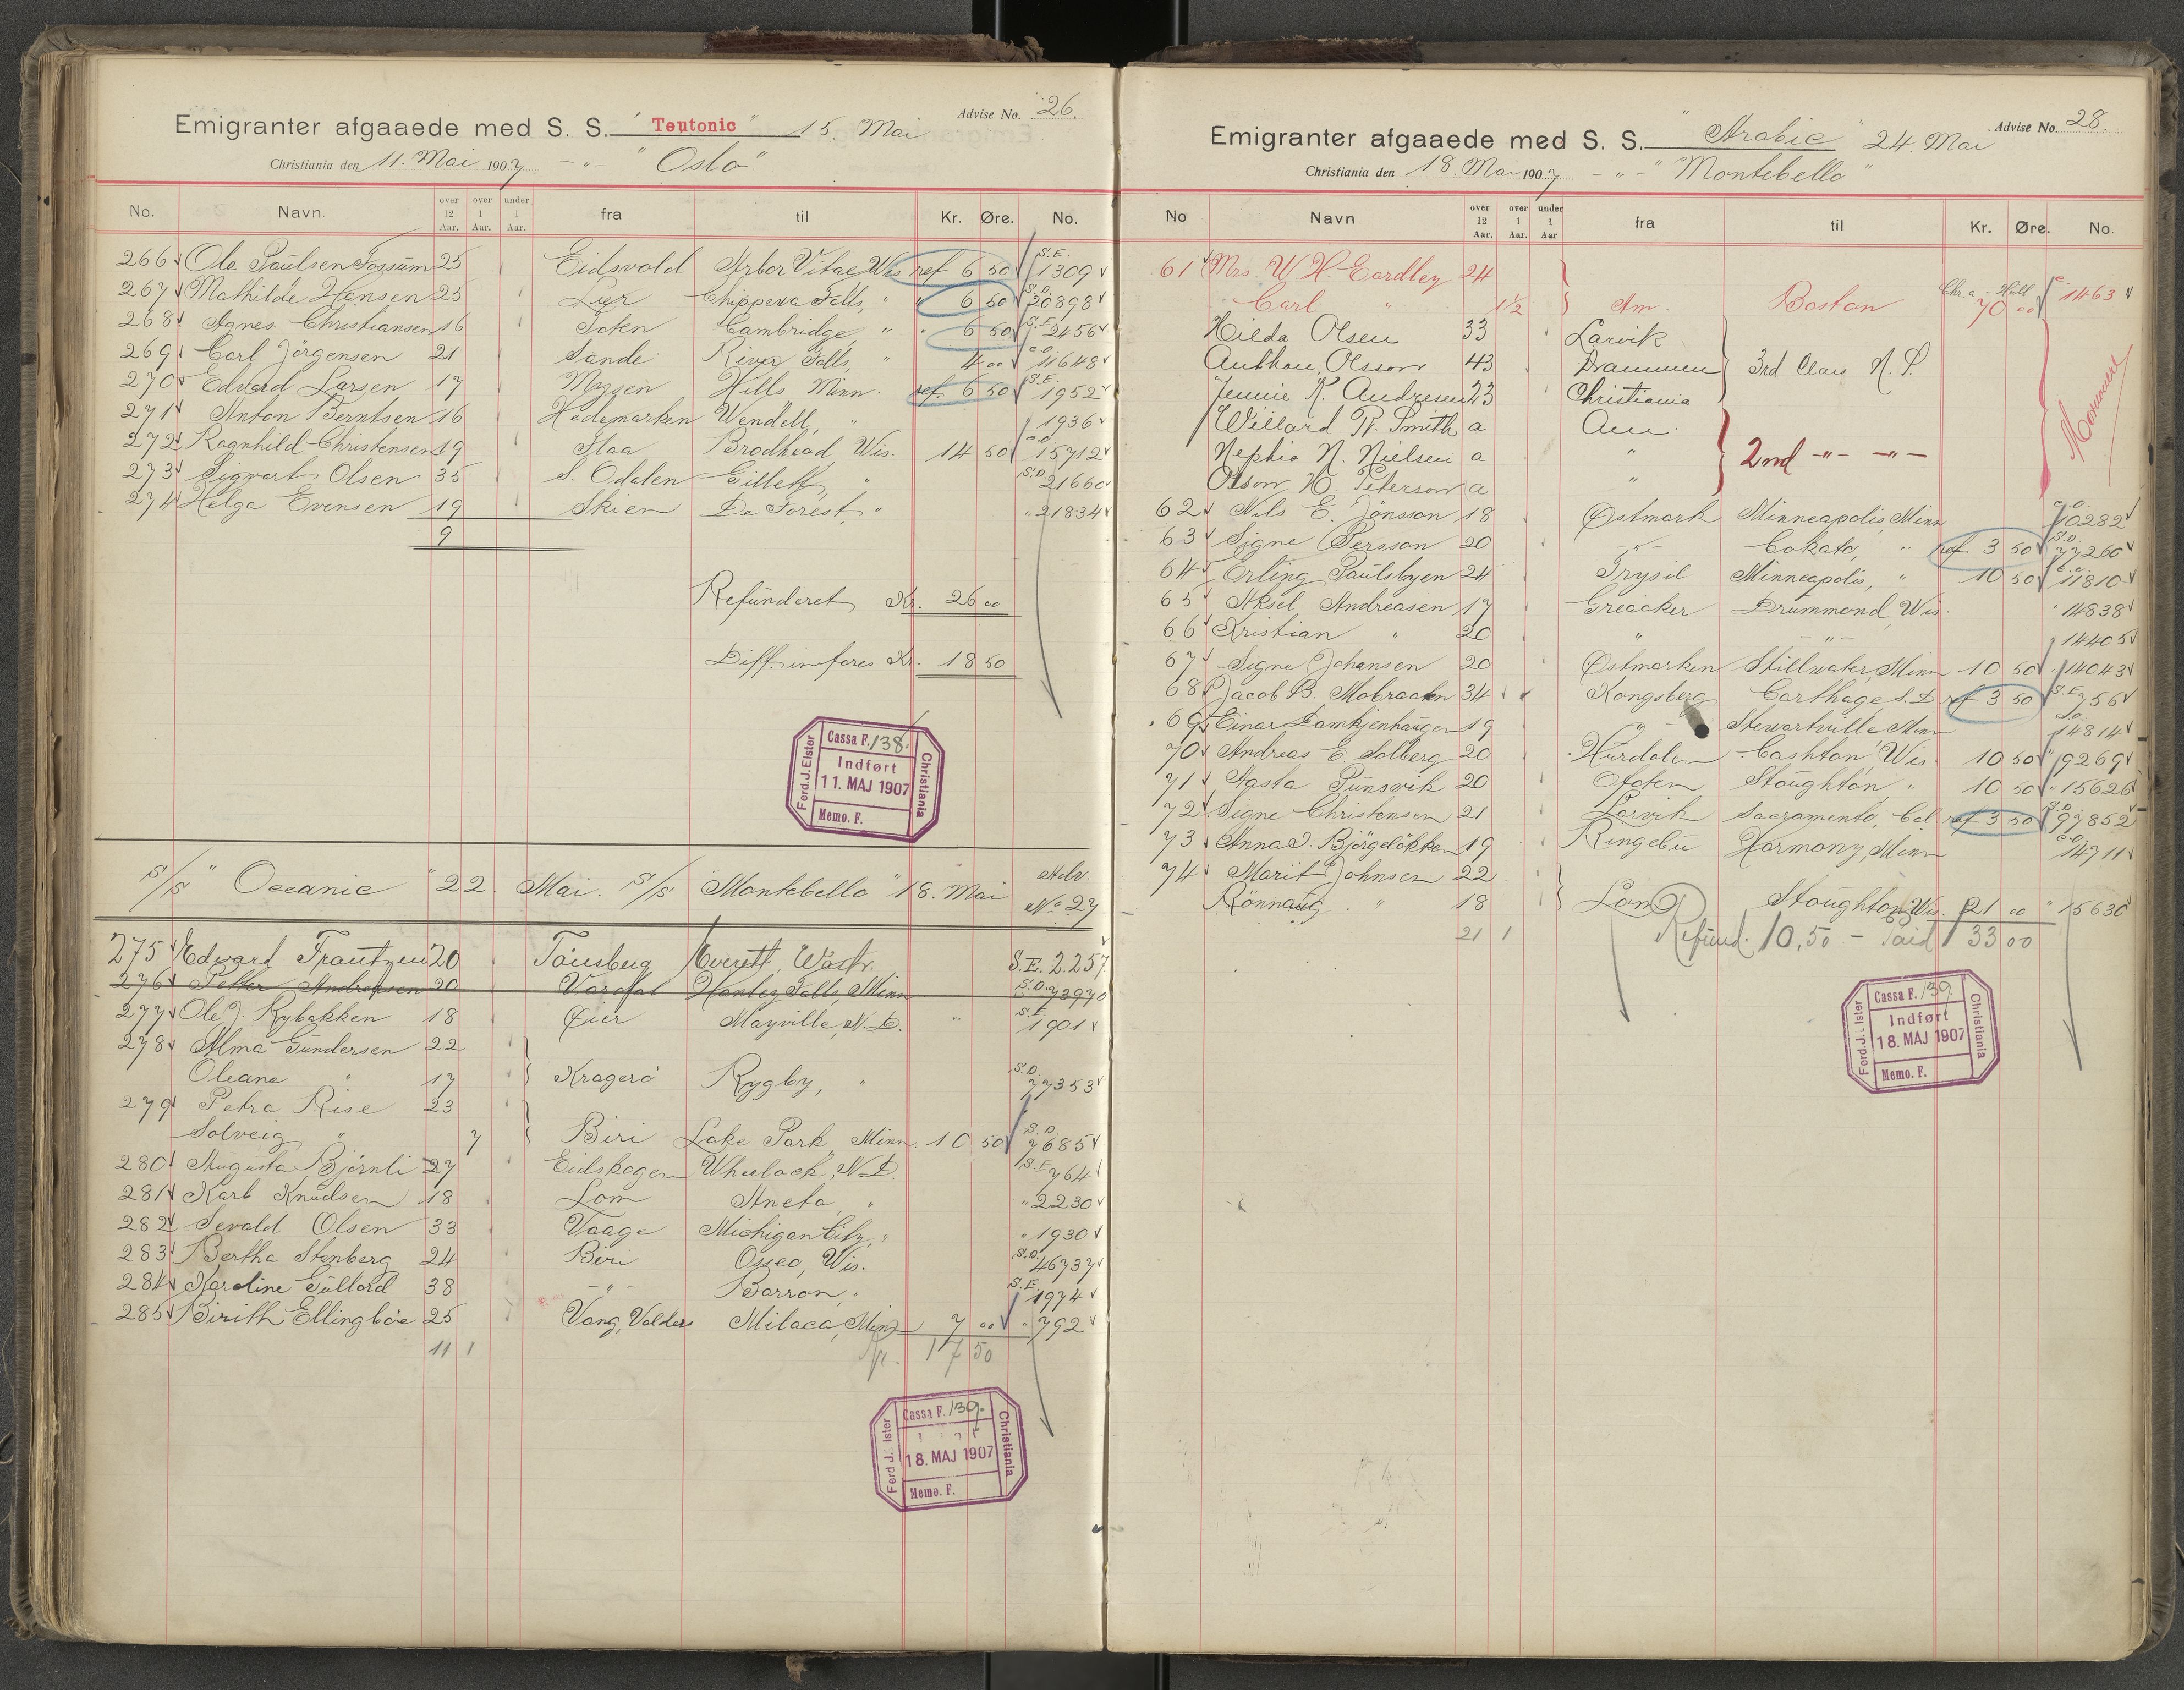 Advise No. 26.
Emigranter afgaaede med S. S. " Teutonic " 15. Mai
Christiania den 11. Mai 1907 -"- " Oslo "
No. Navn. over 12 Aar. over 1 Aar. under 1 Aar. fra til Kr. Øre. No.
266 Ole Paulsen Fossum 25 Eidsvold Arbor Vitae Wis ref 6 50 S.E. 1309
267 Mathilde Hansen 25 Lier Chippewa Falls, " " 6 50 S.D. 20898
268 Agnes Christiansen 16 Toten Cambridge, " " 6 50 S.E. 2456
269 Carl Jörgensen 21 Sande River Falls, " 4 00 C.O. 11648
270 Edvard Larsen 17 Mysen Hills Minn. ref. 6 50 S.E. 1952
271 Anton Berntsen 16 Hedemarken Wendell, " 1936
272 Ragnhild Christensen 19 Flaa Brodhead Wis. 14 50 C.O. 15712
273 Sigvart Olsen 35 S. Odalen Gillett, " S.D. 21660
274 Helga Evensen 19 Skien De Forest, " " 21834
9
Refunderet Kr. 26 00
Diff. in fares Kr. 18 50
Ferd. J. Elster Cassa F. 138. Indført 11. MAJ 1907 Memo. F. Christiania
S/S " Oceanic " 22. Mai. S/S " Montebello " 18. Mai Adv. No 27
275 Edvard Frantzen 20 Tönsberg Everett, Wash. S.E. 2257
276 Petter Andreasen 20 Vardal Hanley Falls, Minn S.D. 73970
277 Ole J. Rybakken 18 Öier Mayville, N.D. " S.E. 1901
278 Alma Gundersen 22
Oleane " 17 Kragerö Rygby, " S.D. 77353
279 Petra Rise 23
Solveig " 7 Biri Lake Park, Minn. 10 50 S.D. 7685
280 Augusta Björnli 27 Eidskogen Wheelock, N.D. S.E. 764
281 Karl Knudsen 18 Lom Aneta, " " 2230
282 Sevald Olsen 33 Vaage Michigan City, " " 1930
283 Bertha Stenberg 24 Biri Osseo, Wis. S.D. 46737
284 Karoline Gullord 38 -"- Barron, " S.E. 1974
285 Birith Ellingböe 25 Vang, Valders Milaca, Minn 7 00 " 792
11 1 Kr. 17 50
Ferd. J. Elster Cassa F. 139. 18. MAJ 1907 Memo. F. Christiania
Advise No. 28.
Emigranter afgaaede med S. S. " Arabic " 24. Mai
Christiania den 18. Mai 1907 -"- " Montebello "
No Navn over 12 Aar. over 1 Aar. under 1 Aar fra til Kr. Øre. No.
61 Mrs. W. H. Eardley 24
Carl " 1½ Am. Boston Chr.a - Hull 70 00 C. 1463
Hilda Olsen 33 Larvik
Anthon Olsson 43 Drammen 3rd Class N. P.
Jennie K. Andresen 23 Christiania
Willard R. Smith a Am.
Nephia N. Nielsen a " 2nd -"- -"-
Olson H. Peterson a "
Mormoner
62 Nils E. Jönsson 18 Östmark Minneapolis, Minn C.O. 10282
63 Signe Persson 20 -"- Cokato, " ref 3 50 S.D. 77260
64 Erling Paulsbyen 24 Trysil Minneapolis, " 10 50 C.O. 11810
65 Aksel Andreasen 17 Greaaker Drummond, Wis. " 14838
66 Kristian " 20 " -"- " 14405
67 Signe Johansen 20 Östmarken Stillwater, Minn 10 50 " 14043
68 Jacob B. Mobraaten 34 Kongsberg Carthage S.D. ref 3 50 S.E. 756
69 Einar Damhjenhaugen 19 -"- Stewartville Minn C.O. 14814
70 Andreas E. Solberg 20 Hurdalen Cashton Wis. 10 50 " 19269
71 Aasta Punsvik 20 Aafen Stoughton " 10 50 " 15626
72 Signe Christensen 21 Larvik Sacramento, Cal ref 3 50 S.D. 97852
73 Anna O. Björgelökken 19 Ringebu Harmony, Minn C.O. 14711
74 Marit Johnsen 22
Rönnaug " 18 Lom Stoughton, Wis. 21 00 " 15630
21 1 Refund. 10,50 - Paid 133 00
Ferd. J. Elster Cassa F. 139. Indført 18. MAJ 1907 Memo. F. Christiania